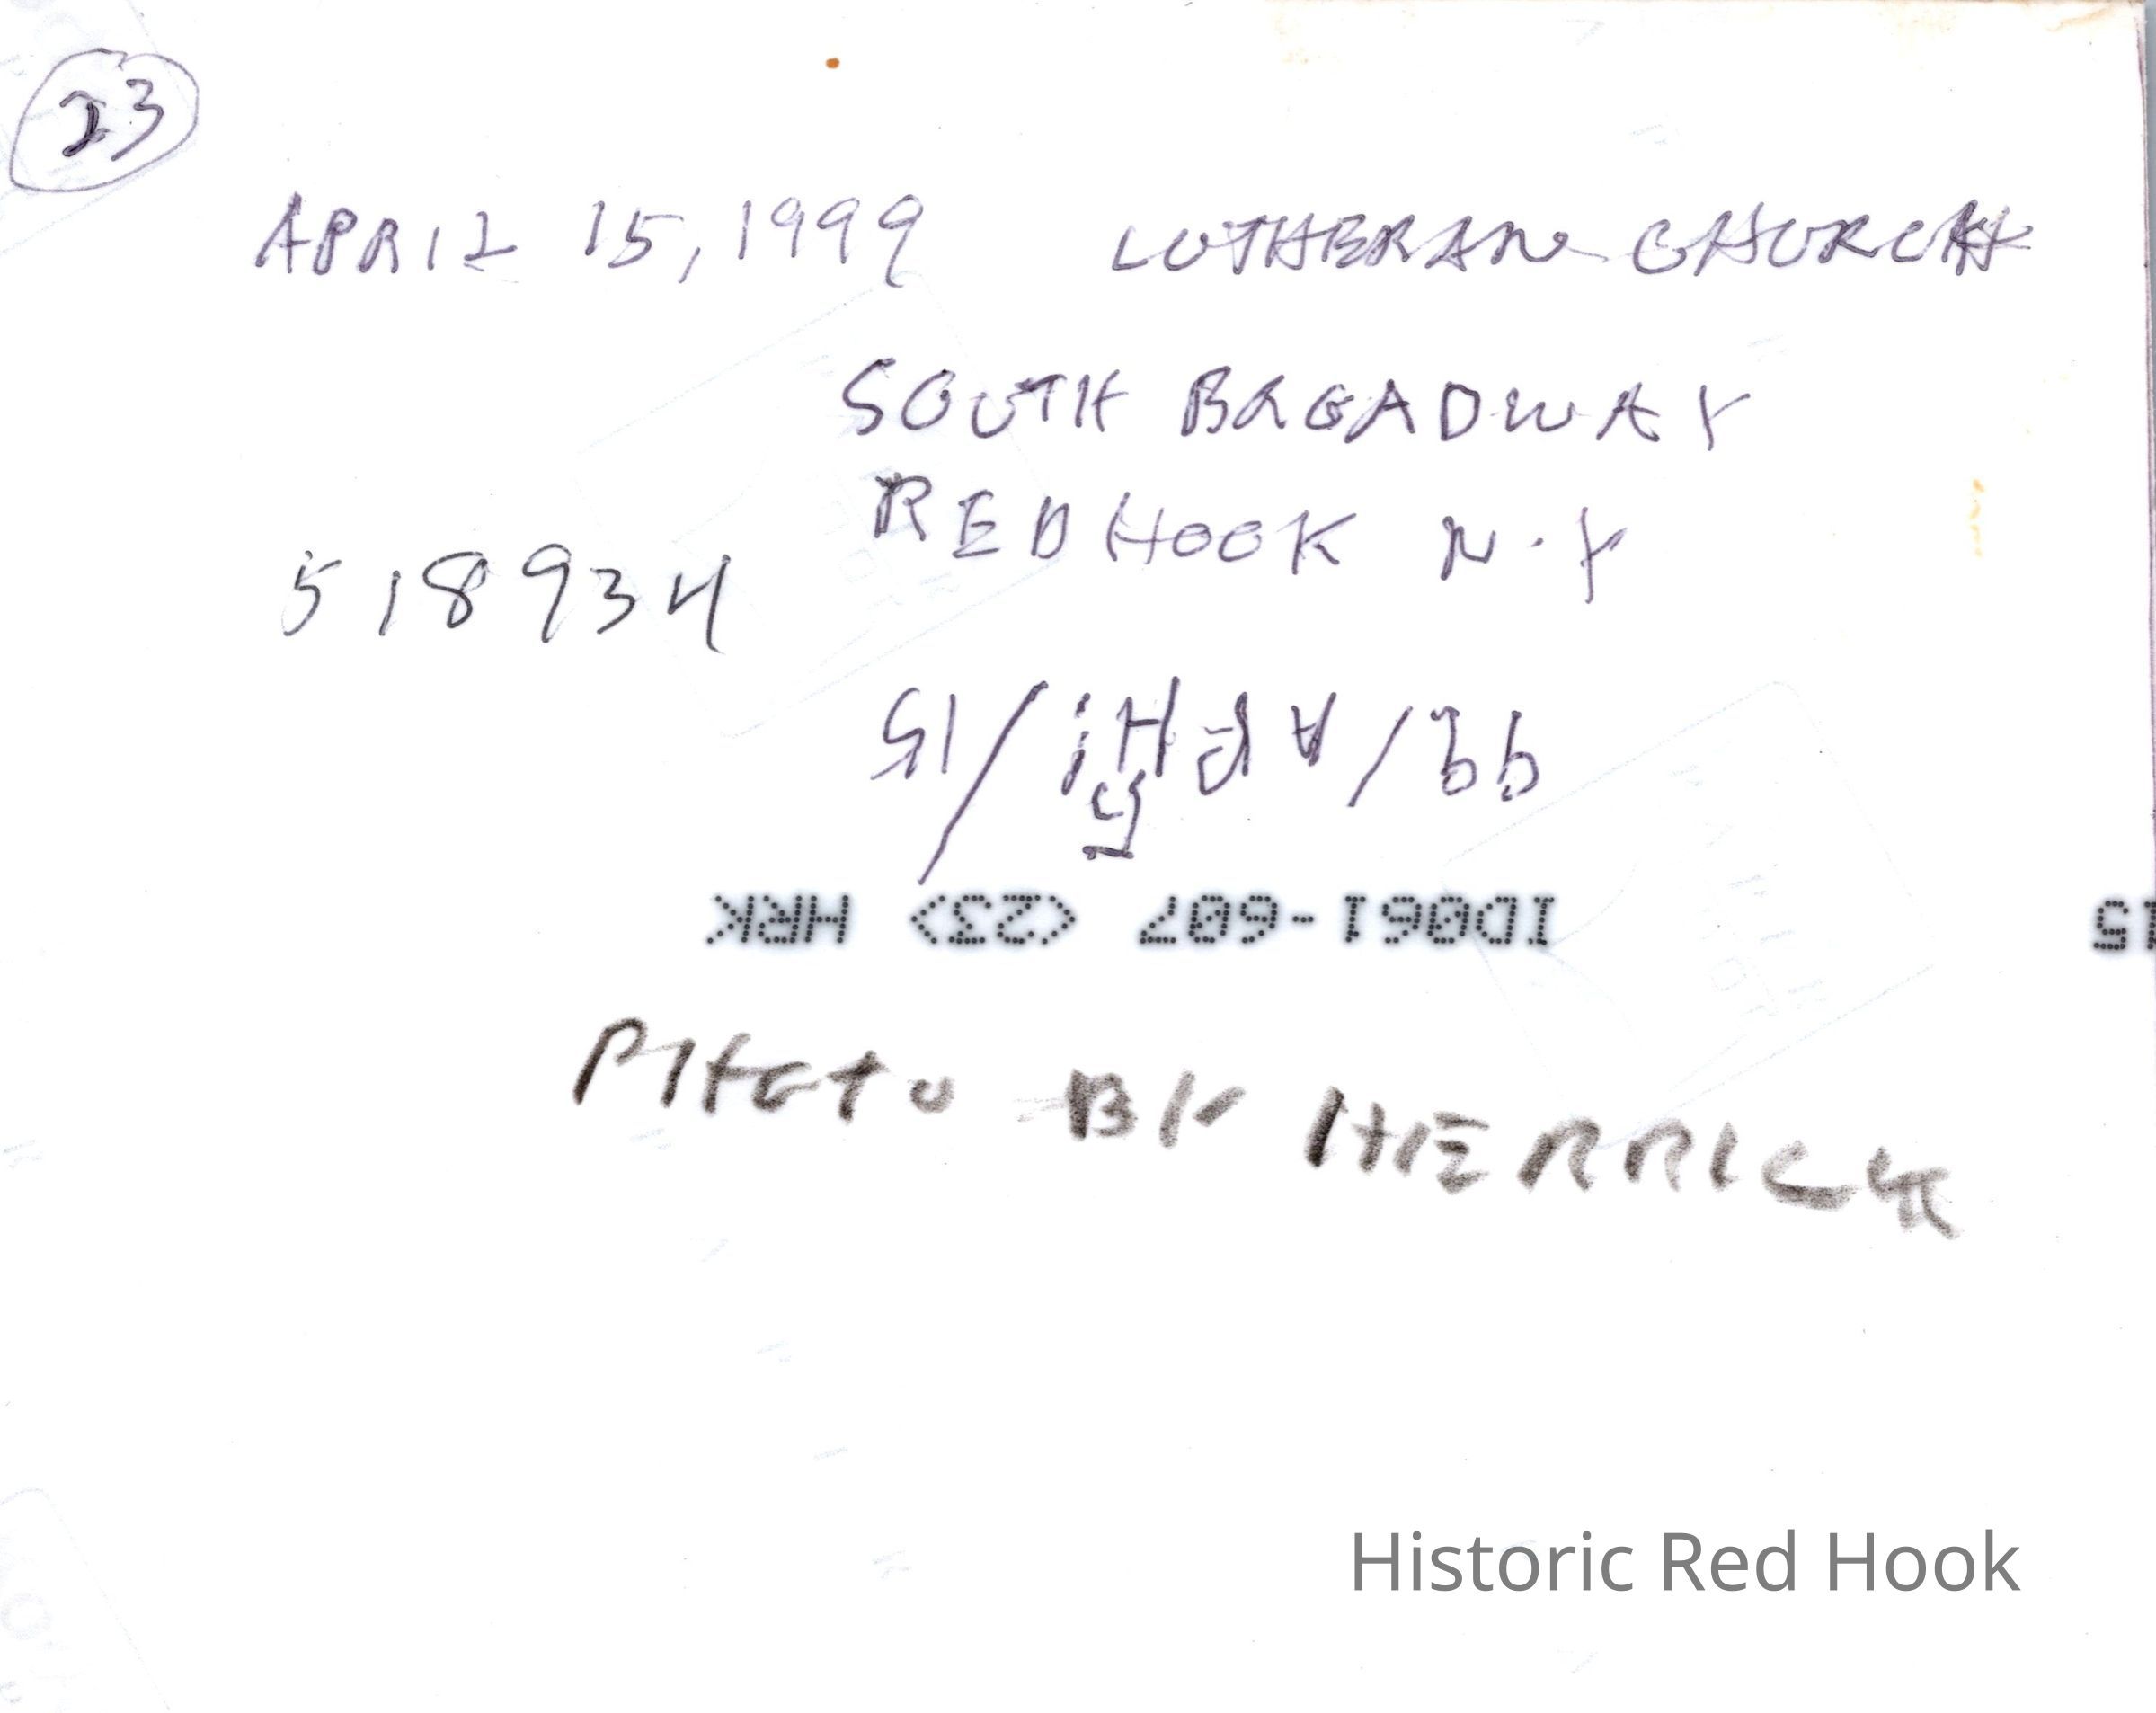 23
APRIL 15, 1999 LUTHERAN CHURCH
SOUTH BROADWAY
RED HOOK N.Y
518934
ID061-607 <23> HRK
PHOTO BY HERRICK
Historic Red Hook